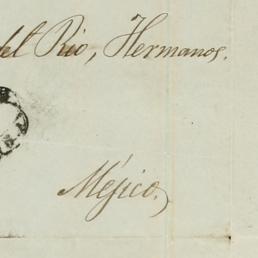 del Rio, Hermanos.
Méjico.